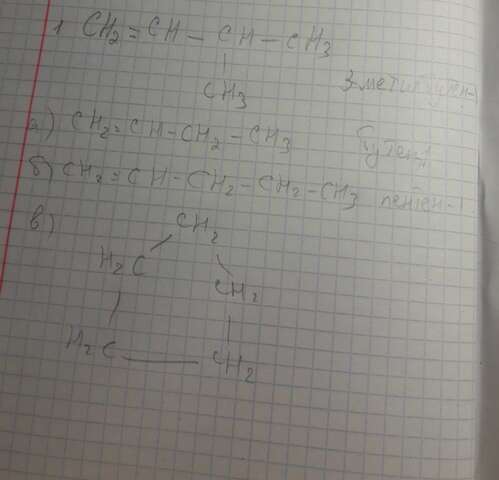 1. CH₂=CH-CH-CH₃
CH₃
3-метилбутен-1
а) CH₂=CH-CH₂-CH₃ бутен1
б) CH₂=CH-CH₂-CH₂-CH₃ пентен-1
в) CH₂
H₂C CH₂
H₂C CH₂